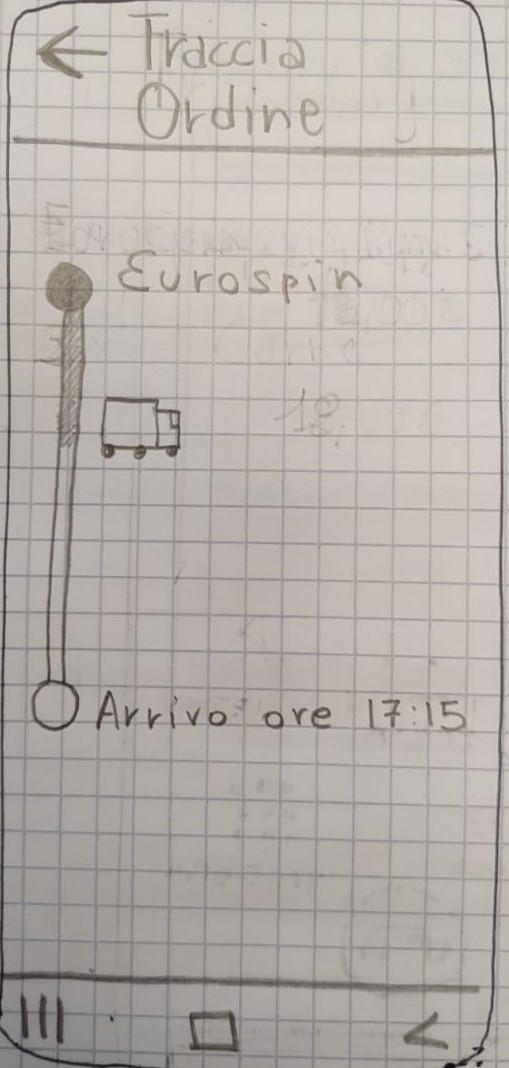 Traccia
Ordine
Eurospin
Arrivo ore 17:15